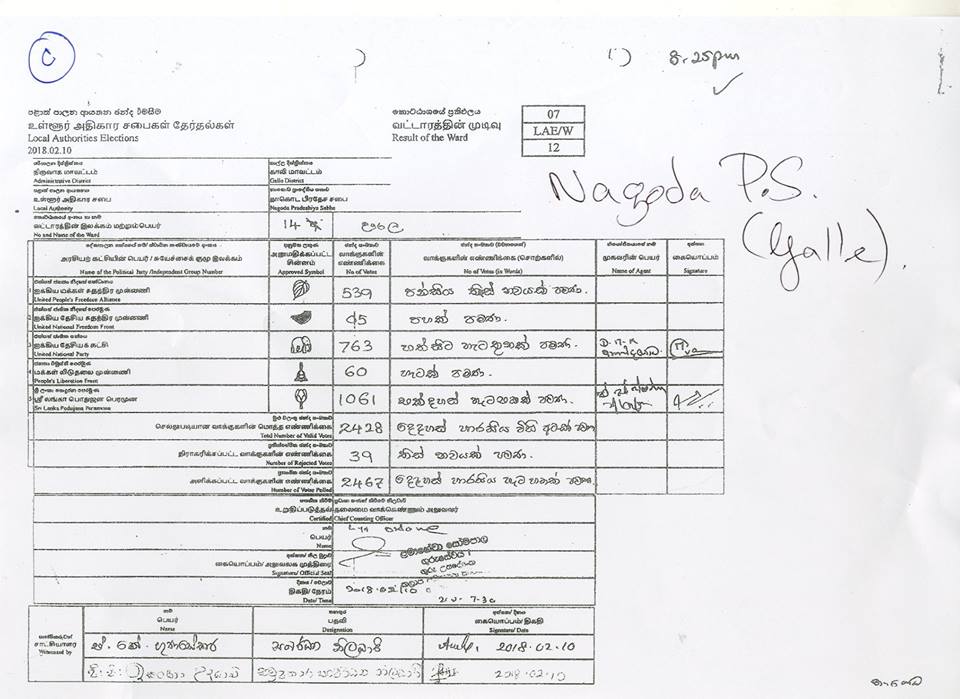 C
8.25pm
පළාත් පාලන ආයතන ඡන්ද විමසීම
உள்ளூர் அதிகார சபைகள் தேர்தல்கள்
Local Authorities Elections
2018.02.10
කොට්ඨාශයේ ප්‍රතිඵලය
வட்டாரத்தின் முடிவு
Result of the Ward
07
LAE/W
12
Nagoda P.S.
(Galle).
පරිපාලන දිස්ත්‍රික්කය
நிருவாக மாவட்டம்
Administrative District
ගාල්ල දිස්ත්‍රික්කය
காலி மாவட்டம்
Galle District
පළාත් පාලන ආයතනය
உள்ளூர் அதிகார சபை
Local Authority
නාගොඩ ප්‍රාදේශීය සභාව
நாகொட பிரதேச சபை
Nagoda Pradeshiya Sabha
කොට්ඨාශයේ අංකය හා නම
வட்டாரத்தின் இலக்கம் மற்றும்பெயர்
No and Name of the Ward
14
அரசியற் கட்சியின் பெயர் / சுயேச்சைக் குழு இலக்கம்
Name of the Political Party /Independent Group Number
අනුමත ලකුණ
அநுமதிக்கப்பட்ட சின்னம்
Approved Symbol
ඡන්ද සංඛ්‍යාව
வாக்குகளின் எண்ணிக்கை
No of Votes
ඡන්ද සංඛ්‍යාව (වචනයෙන්)
வாக்குகளின் எண்ணிக்கை (சொற்களில்)
No. of Votes (in Words)
නියෝජිතයාගේ නම
முகவரின் பெயர்
Name of Agent
අත්සන
கையொப்பம்
Signature
1 එක්සත් ජනතා නිදහස් සන්ධානය
ஐக்கிய மக்கள் சுதந்திர முன்னணி
United People's Freedom Alliance
539 පන්සිය තිස් නවයක් පමණි.
2 එක්සත් ජාතික නිදහස් පෙරමුණ
ஐக்கிய தேசிய சுதந்திர முன்னணி
United National Freedom Front
05 පහක් පමණි.
3 එක්සත් ජාතික පක්ෂය
ஐக்கிய தேசியக் கட்சி
United National Party
763 හත්සිය හැට තුනක් පමණි.
4 ජනතා විමුක්ති පෙරමුණ
மக்கள் விடுதலை முன்னணி
People's Liberation Front
60 හැටක් පමණි.
5 ශ්‍රී ලංකා පොදුජන පෙරමුණ
ஸ்ரீ லங்கா பொதுஜன பெரமுன
Sri Lanka Podujana Peramuna
1061 එක්දහස් හැට එකක් පමණි.
වලංගු ඡන්ද සංඛ්‍යාව
செல்லுபடியான வாக்குகளின் மொத்த எண்ணிக்கை
Total Number of Valid Votes
2428 දෙදහස් හාරසිය විසි අටක් පමණි
ප්‍රතික්ෂේපිත ඡන්ද සංඛ්‍යාව
நிராகரிக்கப்பட்ட வாக்குகளின் எண்ணிக்கை
Number of Rejected Votes
39 තිස් නවයක් පමණි.
அளிக்கப்பட்ட வாக்குகளின் எண்ணிக்கை
Number of Votes Polled
2467 දෙදහස් හාරසිය හැට හතක් පමණි
உறுதிப்படுத்தல் தலைமை வாக்கெண்ணும் அலுவலர்
Certified Chief Counting Officer
නම
பெயர்
Name
கையொப்பம்/ அலுவலக முத்திரை
Signature/ Official Seal
දිනය / වේලාව
திகதி/ நேரம்
Date/ Time
2018.02/10
7.30
சாட்சியாளர்
Witnessed by
නම
பெயர்
Name
තනතුර
பதவி
Designation
අත්සන/ දිනය
கையொப்பம்/திகதி
Signature/ Date
එස්. කේ. ගුණසේකර
2018.02.10
2018.02.10